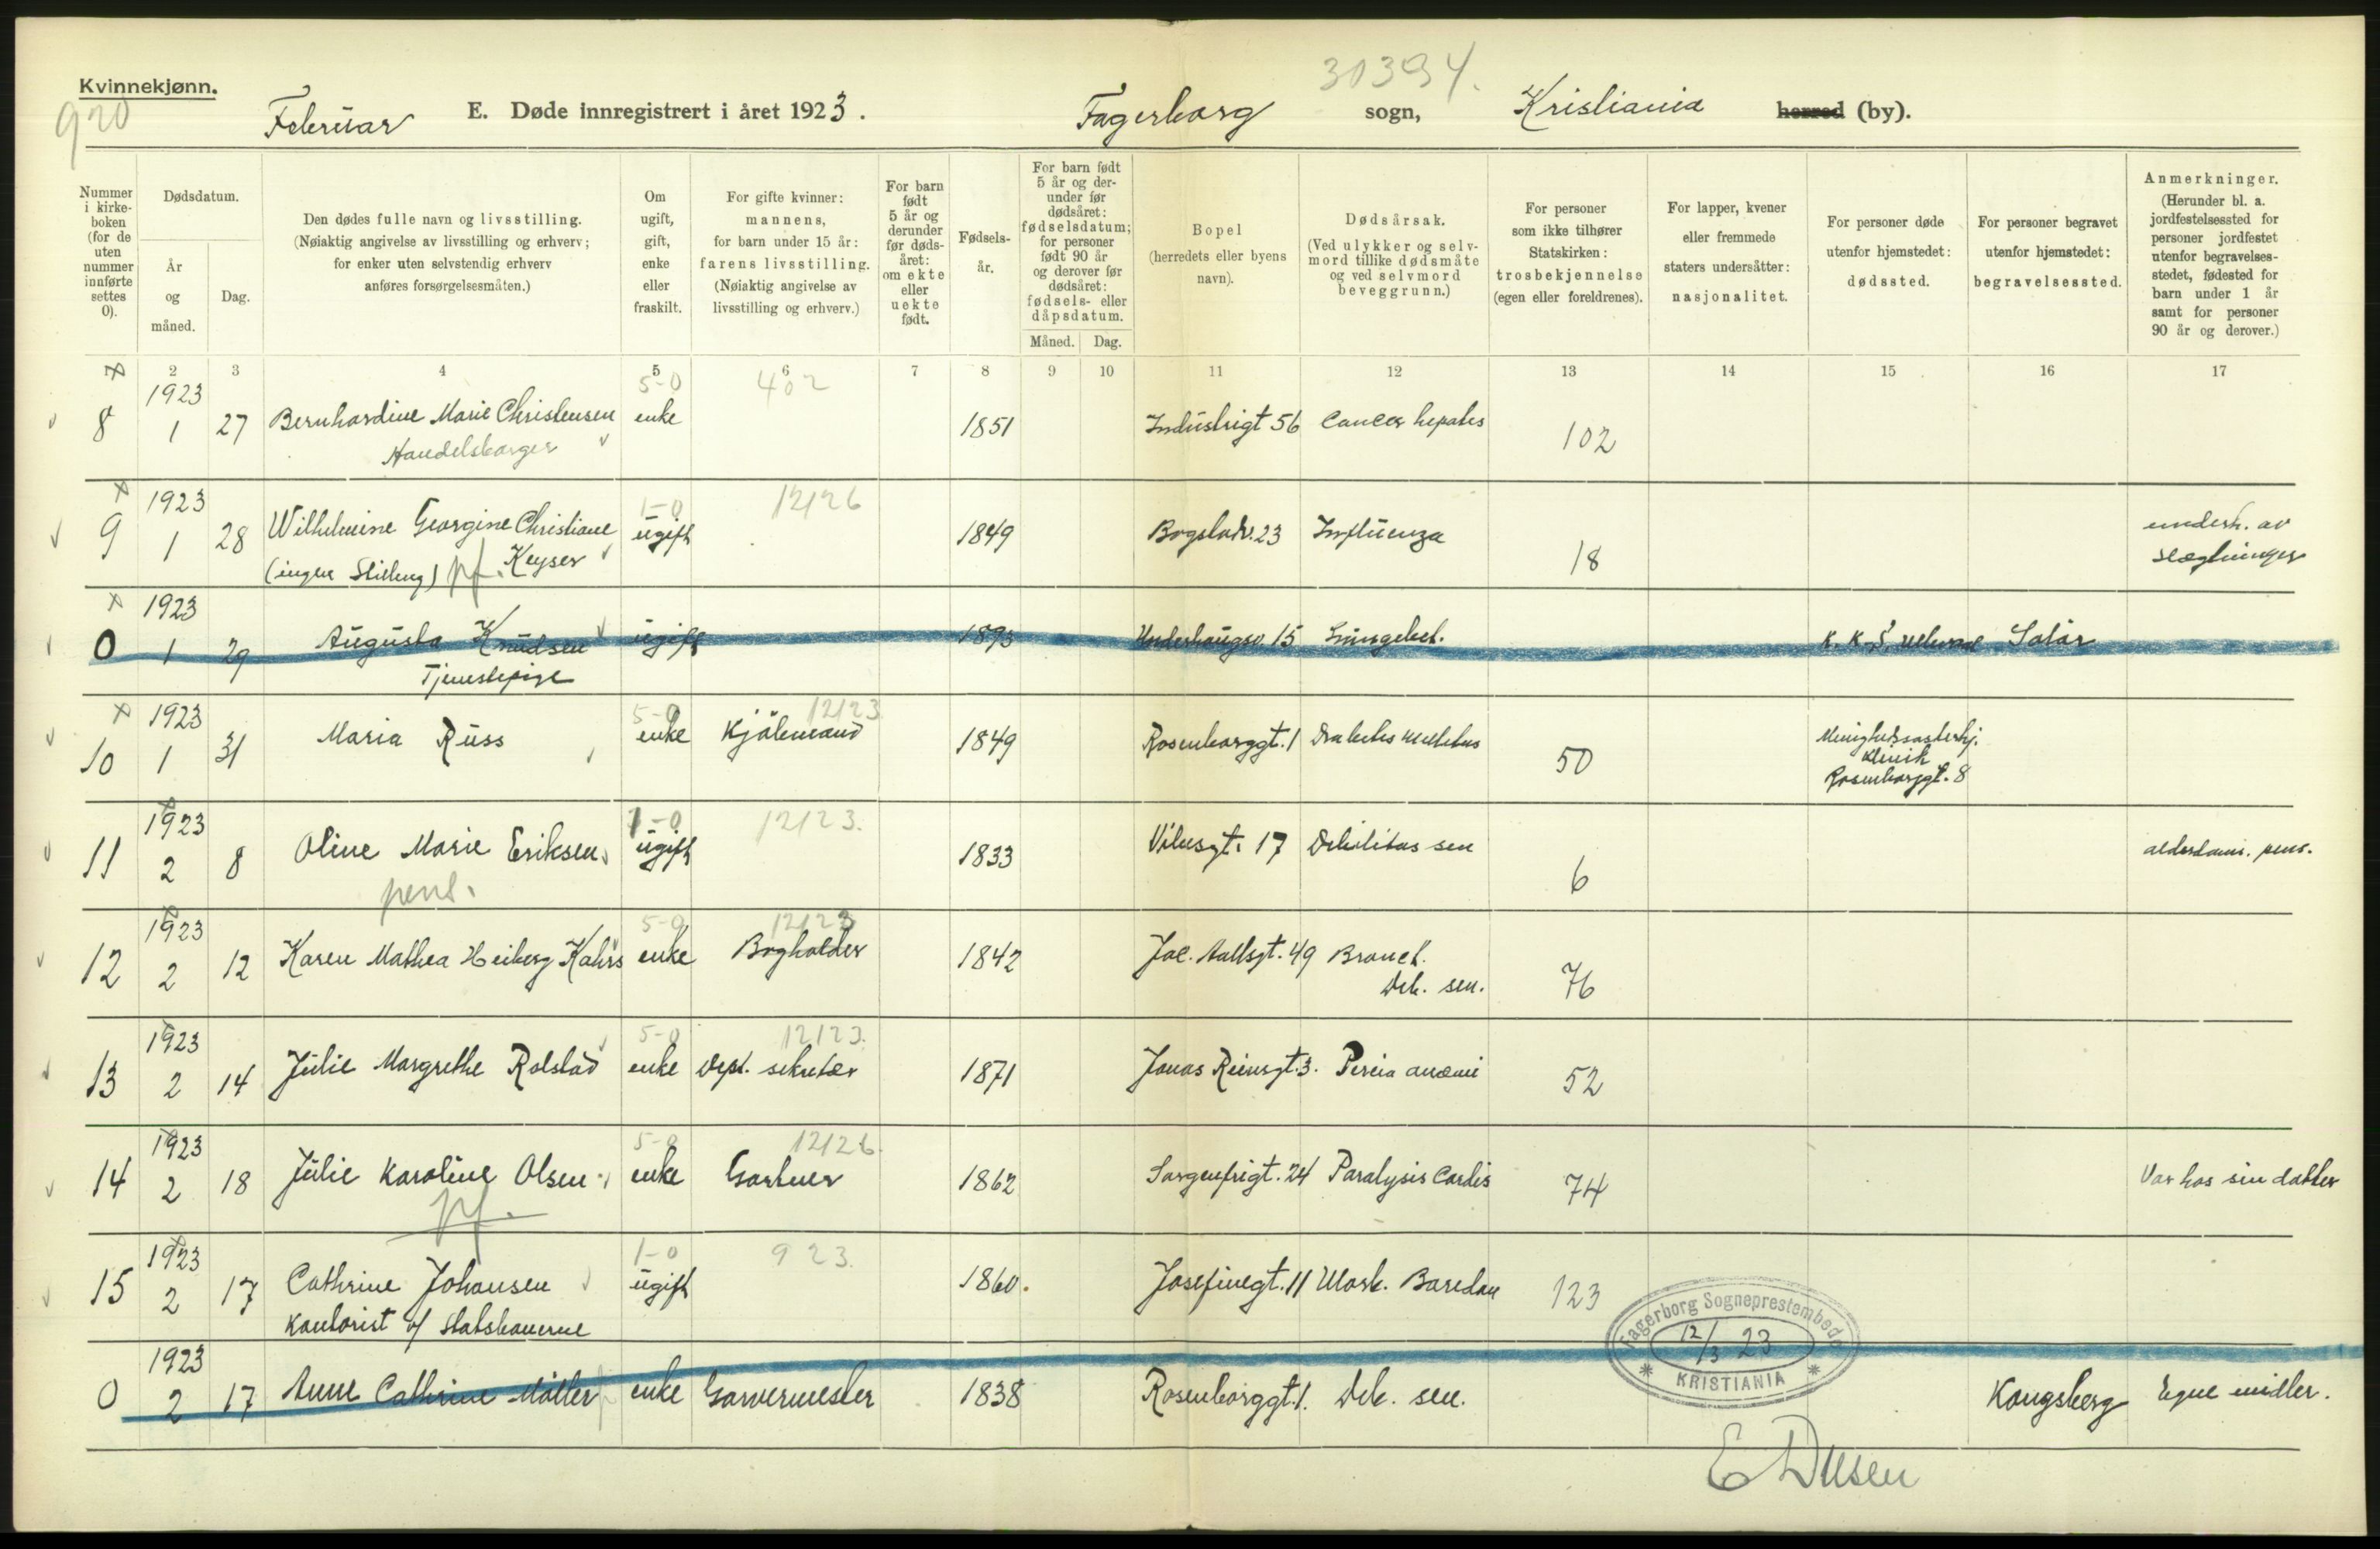 Kvinnekjønn.
920
30394.
Februar E. Døde innregistrert i året 1923. Fagerborg sogn, Kristiania herred (by).
Nummer i kirkeboken (for de uten nummer innførte settes 0).
Dødsdatum.
År og måned.
Dag.
Den dødes fulle navn og livsstilling.
(Nøiaktig angivelse av livsstilling og erhverv;
for enker uten selvstendig erhverv
anføres forsørgelsesmåten.)
Om ugift, gift, enke eller fraskilt.
For gifte kvinner:
mannens,
for barn under 15 år:
farens livsstilling.
(Nøiaktig angivelse av
livsstilling og erhverv.)
For barn født 5 år og derunder før dødsåret: om ekte eller uekte født.
Fødselsår.
For barn født 5 år og derunder før dødsåret: fødselsdatum; for personer født 90 år og derover før dødsåret: fødsels- eller dåpsdatum.
Måned. Dag.
Bopel
(herredets eller byens
navn).
Dødsårsak.
(Ved ulykker og selvmord tillike dødsmåte og ved selvmord beveggrunn.)
For personer
som ikke tilhører
Statskirken:
trosbekjennelse
(egen eller foreldrenes).
For lapper, kvener
eller fremmede
staters undersåtter:
nasjonalitet.
For personer døde
utenfor hjemstedet:
dødssted.
For personer begravet
utenfor hjemstedet:
begravelsessted.
Anmerkninger.
(Herunder bl. a.
jordfestelsessted for
personer jordfestet
utenfor begravelses-
stedet, fødested for
barn under 1 år
samt for personer
90 år og derover.)
2 3 4 5 6 7 8 9 10 11 12 13 14 15 16 17
1923 5-0 402
8 1 27 Bernhardine Marie Christensen enke 1851 Industrigt 56 Cancer hepatis 102
Handelsborger
1923 1-0 12126
9 1 28 Wilhelmine Georgine Christiane ugift 1849 Bogstadv. 23 Influenza 18 underh. av
(ingen Stilling) pf. Keyser slægtninger
1923
0 1 29 Augusta Knudsen ugift 1893 Underhaugsv. 15 Lungetub. K. K. S. Ullevaal Solør
Tjenestepige
1923 5-0 12123
10 1 31 Maria Russ enke Kjölemand 1849 Rosenborggt. 1 Diabetes mellitus 50 Menighedssösterhj.
Klinik
Rosenborggt. 8
1923 1-0 12123.
11 2 8 Oline Marie Eriksen ugift 1833 Vibesgt. 17 Debilitas sen 6 alderdoms. pens.
pens.
1923 5-0 12123
12 2 12 Karen Mathea Heiberg Kahrs enke Bogholder 1842 Jac. Aallsgt. 49 Bronch.
Deb. sen. 76
1923 5-0 12123.
13 2 14 Julie Margrethe Rolstad enke Dept. sekretær 1871 Jonas Reinsgt. 3. Pernia anæmi 52
1923 5-0 12126.
14 2 18 Julie Karoline Olsen enke Gartner 1862 Sorgenfrigt. 24 Paralysis Cordis 74 Var hos sin datter
pf.
1923 1-0 923.
15 2 17 Cathrine Johansen ugift 1860. Josefinegt. 11 Morb. Basedow 123
Kontorist v/ Statsbanerne
Fagerborg Sogneprestembede
12/3 23
KRISTIANIA
1923
0 2 17 Anne Cathrine Möller enke Garvermester 1838 Rosenborggt. 1. Deb. sen. Kongsberg Egne midler.